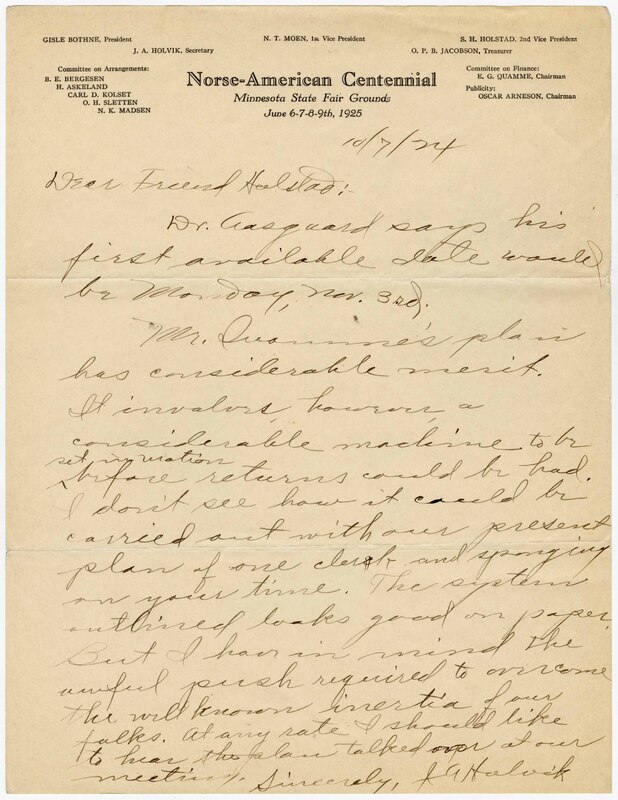 GISLE BOTHNE, President
N. T. MOEN, 1st Vice President
S. H. HOLSTAD, 2nd Vice President
J. A. HOLVIK, Secretary
O. P. B. JACOBSON, Treasurer
Committee on Arrangements:
B. E. BERGESEN
H. ASKELAND
CARL D. KOLSET
O. H. SLETTEN
N. K. MADSEN
Norse-American Centennial
Minnesota State Fair Grounds
June 6-7-8-9th, 1925
Committee on Finance:
E. G. QUAMME, Chairman
Publicity:
OSCAR ARNESON, Chairman
10/7/24
Dear Friend Holstad:-
Dr. Aasgaard says his
first available date would
be Monday, Nov. 3rd.
Mr. plan
has considerable merit.
It involves, however, a
considerable machine to be
set in motion
before returns could be had.
I don't see how it could be
carried out with our present
plan of one clerk and sponging
on your time. The system
outlined looks good on paper.
But I have in mind the
awful push required to overcome
the well known inertia of our
folks. At any rate I should like
to hear the plan talked over at our
meeting. Sincerely, J A Holvik